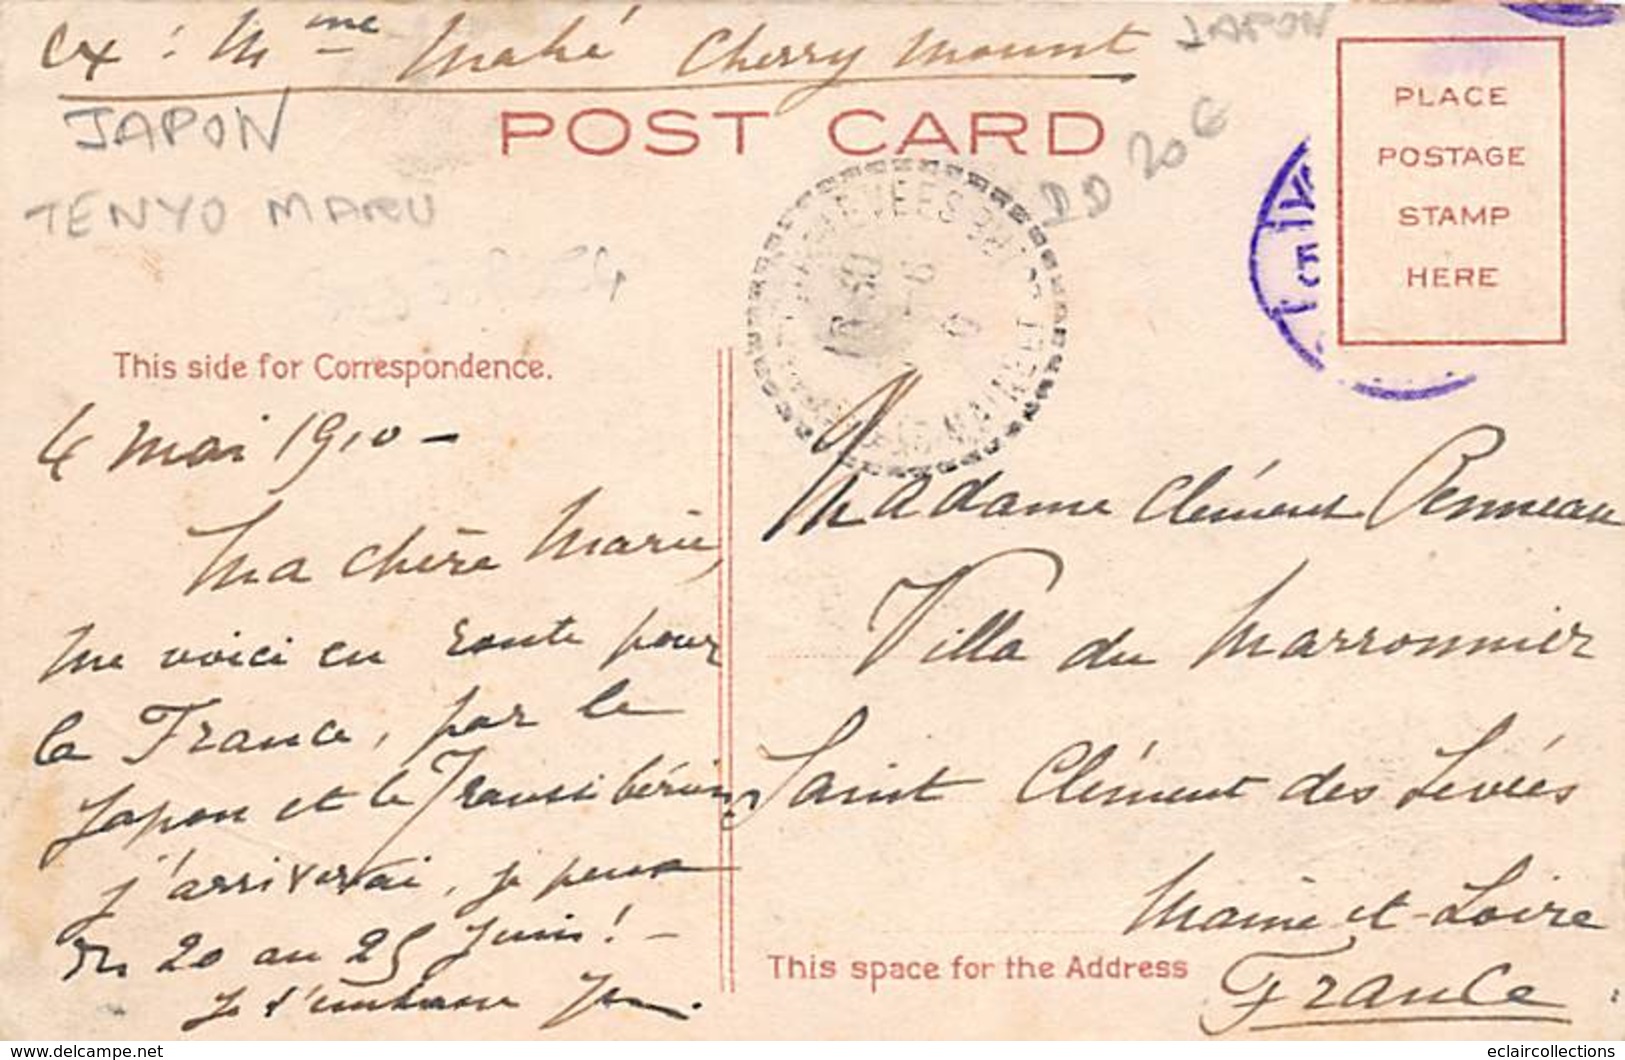 Ex : Mme Mahé Cherry Mount
JAPON
JAPON
TENYO MARU
POST CARD
DD 20 €
PLACE
POSTAGE
STAMP
HERE
This side for Correspondence.
4 mai 1910 -
Ma chère Marie,
Me voici en route pour
la France, par le
Japon et le Transsibérien
j'arriverai, je pense
du 20 au 25 Juin ! -
Je t'embrasse
Madame Clément Penneau
Villa du Marronnier
Saint Clément des Levées
Maine et Loire
France
This space for the Address
www.delcampe.net
eclaircollections